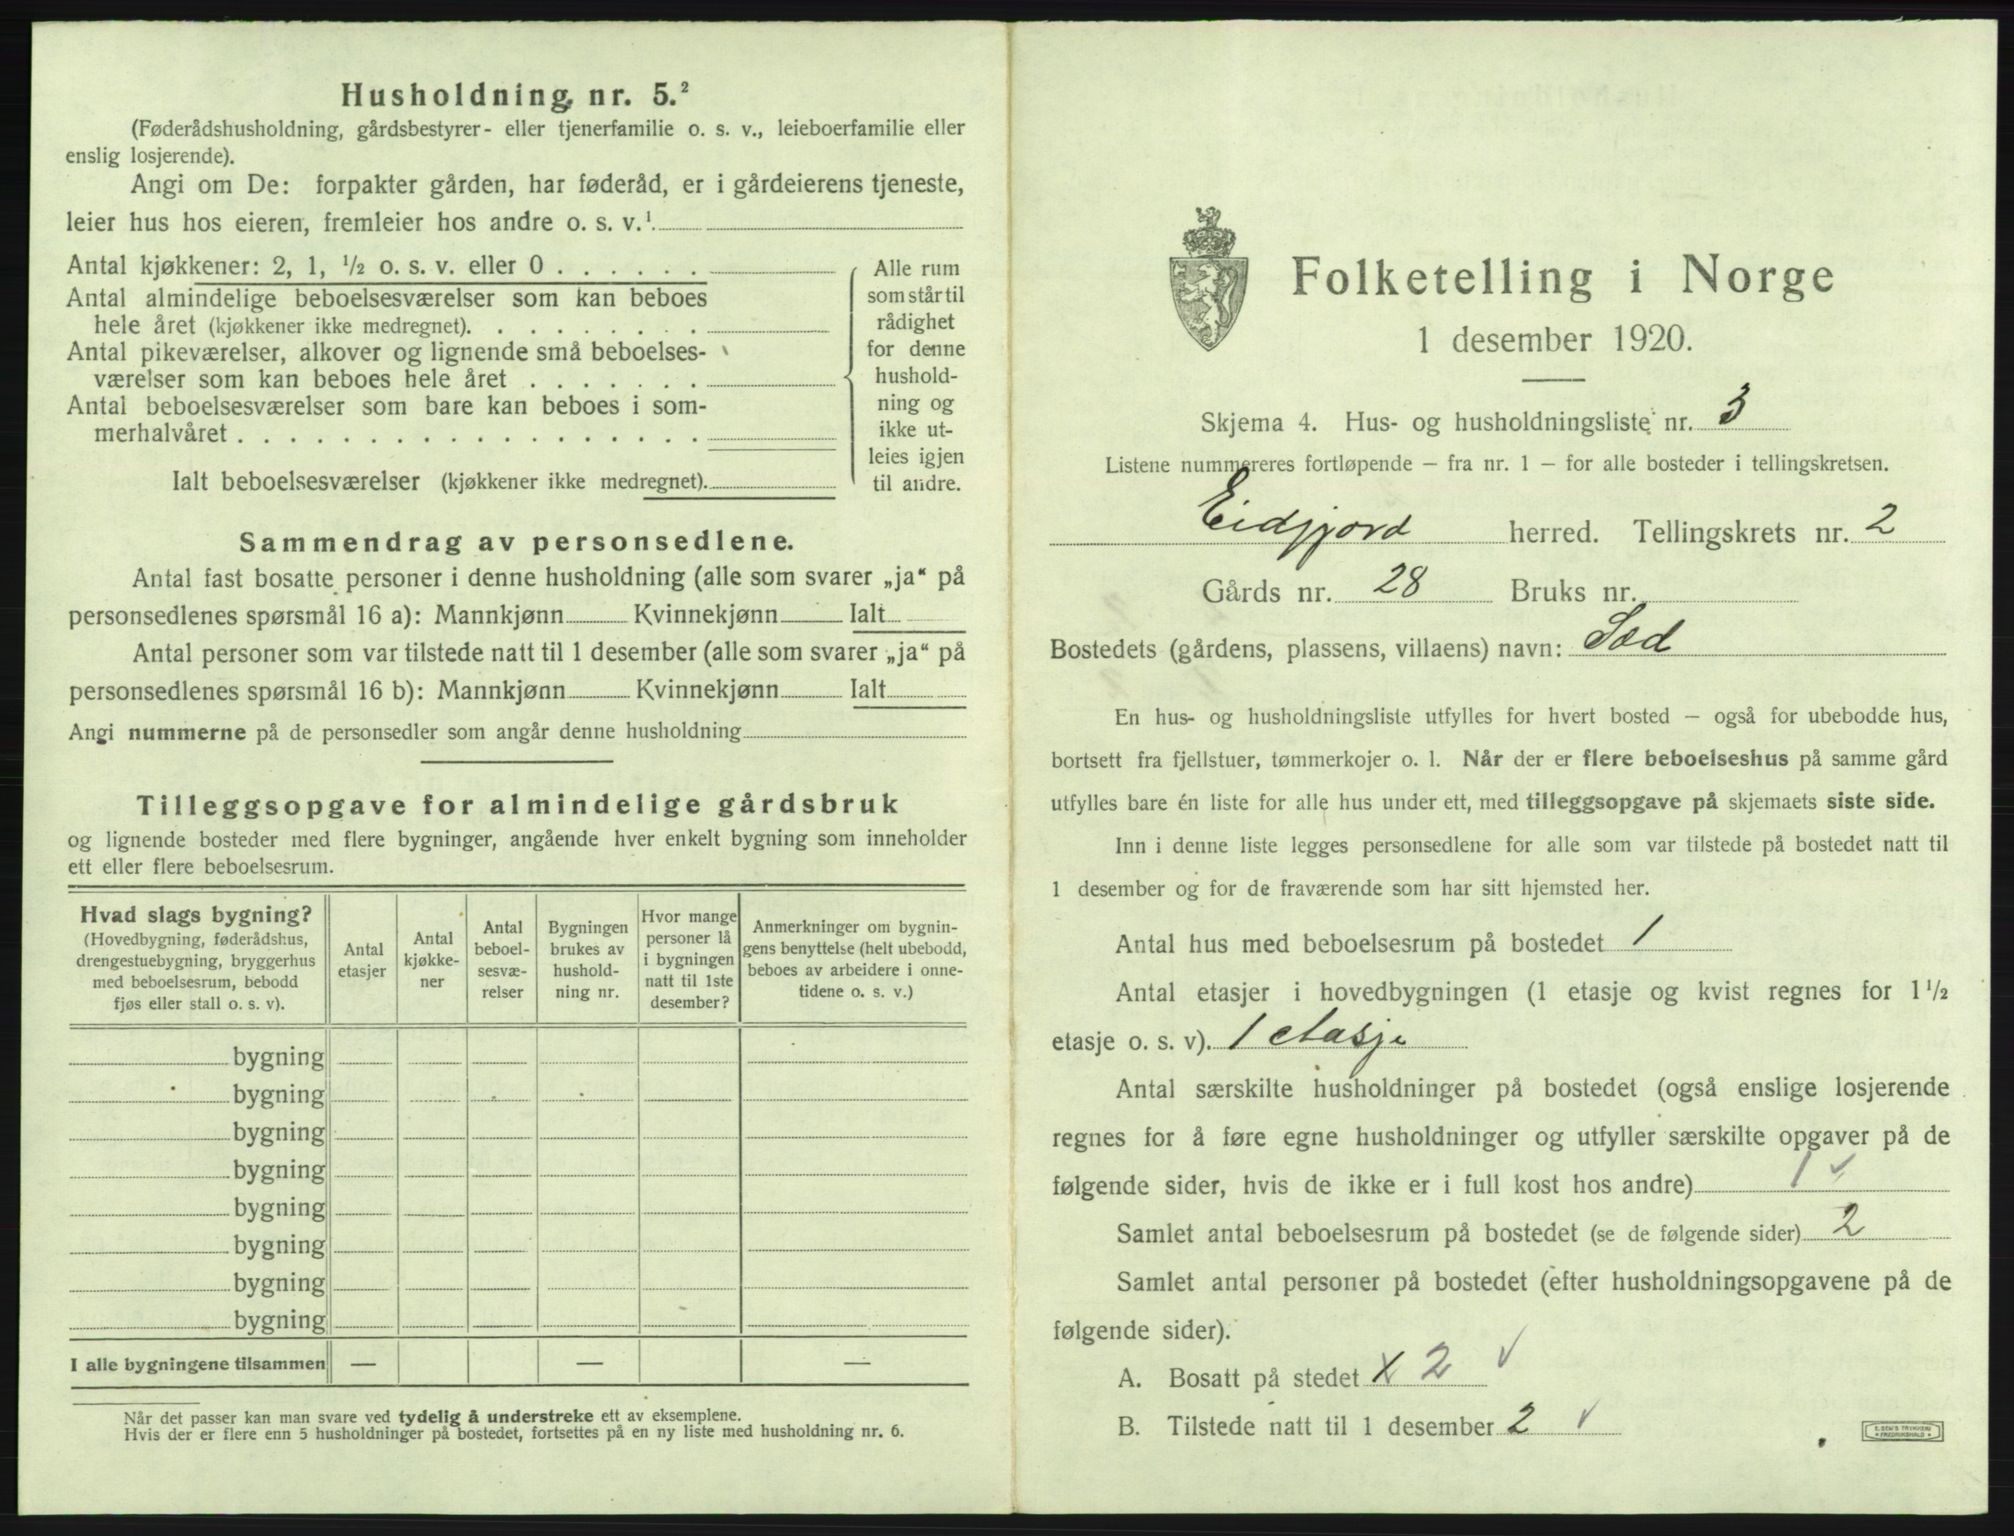 Husholdning nr. 5.²
(Føderådshusholdning, gårdsbestyrer- eller tjenerfamilie o. s. v., leieboerfamilie eller
enslig losjerende).
Angi om De: forpakter gården, har føderåd, er i gårdeierens tjeneste,
leier hus hos eieren, fremleier hos andre o. s. v.¹
Antal kjøkkener: 2, 1, ½ o. s. v. eller 0 . . . . . .
Antal almindelige beboelsesværelser som kan beboes
hele året (kjøkkener ikke medregnet). . . . . . . . .
Antal pikeværelser, alkover og lignende små beboelses-
værelser som kan beboes hele året . . . . . . .
Antal beboelsesværelser som bare kan beboes i som-
merhalvåret . . . . . . . . . . . . . . . . . .
Ialt beboelsesværelser (kjøkkener ikke medregnet).
Alle rum
som står til
rådighet
for denne
hushold-
ning og
ikke ut-
leies igjen
til andre.
Sammendrag av personsedlene.
Antal fast bosatte personer i denne husholdning (alle som svarer „ja“ på
personsedlenes spørsmål 16 a): Mannkjønn Kvinnekjønn Ialt
Antal personer som var tilstede natt til 1 desember (alle som svarer „ja“ på
personsedlenes spørsmål 16 b): Mannkjønn Kvinnekjønn Ialt
Angi nummerne på de personsedler som angår denne husholdning
Tilleggsopgave for almindelige gårdsbruk
og lignende bosteder med flere bygninger, angående hver enkelt bygning som inneholder
ett eller flere beboelsesrum.
Hvad slags bygning?
(Hovedbygning, føderådshus,
drengestuebygning, bryggerhus
med beboelsesrum, bebodd
fjøs eller stall o. s. v).
Antal
etasjer
Antal
kjøkke-
ner
Antal
beboel-
sesvæ-
relser
Bygningen
brukes av
hushold-
ning nr.
Hvor mange
personer lå
i bygningen
natt til 1ste
desember?
Anmerkninger om bygnin-
gens benyttelse (helt ubebodd,
beboes av arbeidere i onne-
tidene o. s. v.)
bygning
bygning
bygning
bygning
bygning
bygning
bygning
bygning
I alle bygningene tilsammen — — —
Når det passer kan man svare ved tydelig å understreke ett av eksemplene.
Hvis der er flere enn 5 husholdninger på bostedet, fortsettes på en ny liste med husholdning nr. 6.
Folketelling i Norge
1 desember 1920.
Skjema 4. Hus- og husholdningsliste nr. 3
Listene nummereres fortløpende — fra nr. 1 — for alle bosteder i tellingskretsen.
Eidfjord herred. Tellingskrets nr. 2
Gårds nr. 28 Bruks nr.
Bostedets (gårdens, plassens, villaens) navn: Sæd
En hus- og husholdningsliste utfylles for hvert bosted — også for ubebodde hus,
bortsett fra fjellstuer, tømmerkojer o. l. Når der er flere beboelseshus på samme gård
utfylles bare én liste for alle hus under ett, med tilleggsopgave på skjemaets siste side.
Inn i denne liste legges personsedlene for alle som var tilstede på bostedet natt til
1 desember og for de fraværende som har sitt hjemsted her.
Antal hus med beboelsesrum på bostedet 1
Antal etasjer i hovedbygningen (1 etasje og kvist regnes for 1½
etasje o. s. v). 1 etasje
Antal særskilte husholdninger på bostedet (også enslige losjerende
regnes for å føre egne husholdninger og utfyller særskilte opgaver på de
følgende sider, hvis de ikke er i full kost hos andre) 1 ✓
Samlet antal beboelsesrum på bostedet (se de følgende sider) 2
Samlet antal personer på bostedet (efter husholdningsopgavene på de
følgende sider).
A. Bosatt på stedet x 2 ✓
B. Tilstede natt til 1 desember 2 ✓
E. SEM'S TRYKKERI
FREDRIKSHALD